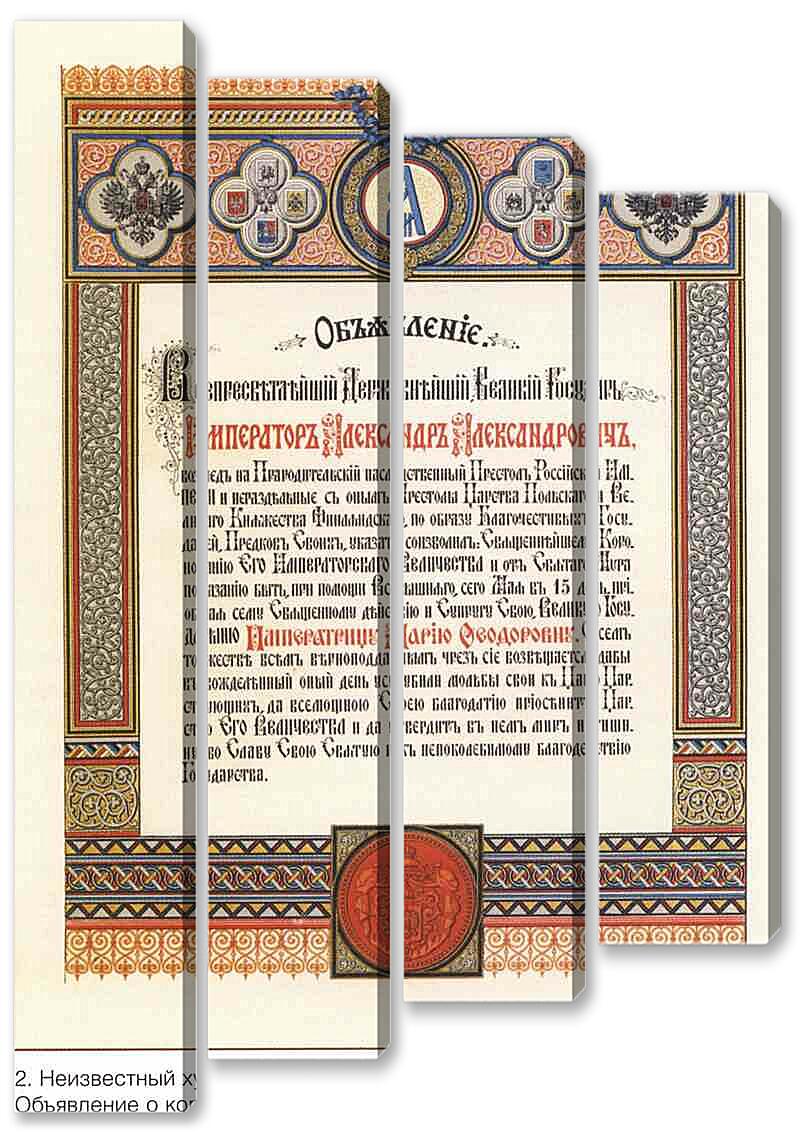 Объявленіе.
Всепресвѣтлѣйшій Державнѣйшій Великій Государь
Императоръ Александръ Александровичъ,
восшедъ на Прародительскій наслѣдственный Престолъ Россійской Им-
періи и нераздѣльные съ онымъ Престолы Царства Польскаго и Ве-
ликаго Княжества Финляндскаго, по образу Благочестивыхъ Госу-
дарей, Предковъ Своихъ, указать соизволилъ: Священнѣйшей Коро-
націи Его Императорскаго Величества и отъ Святаго Мѵра
помазанію быть, при помощи Всевышняго, сего Мая въ 15 день, прі-
общая сему Священному дѣйствію и Супругу Свою, Великую Госу-
дарыню Императрицу Марію Ѳеодоровну. О семъ
торжествѣ всѣмъ вѣрноподданнымъ чрезъ сіе возвѣщается, дабы
въ вожделѣнный оный день усугубили мольбы свои къ Царю Цар-
ствующихъ, да всемощною Своею благодатію пріосѣнитъ Цар-
ство Его Величества и да утвердитъ въ немъ миръ и тиши-
ну, во Славу Свою Святую и къ непоколебимому благоденствію
Государства.
2. Неизвестный ху
Объявление о кор